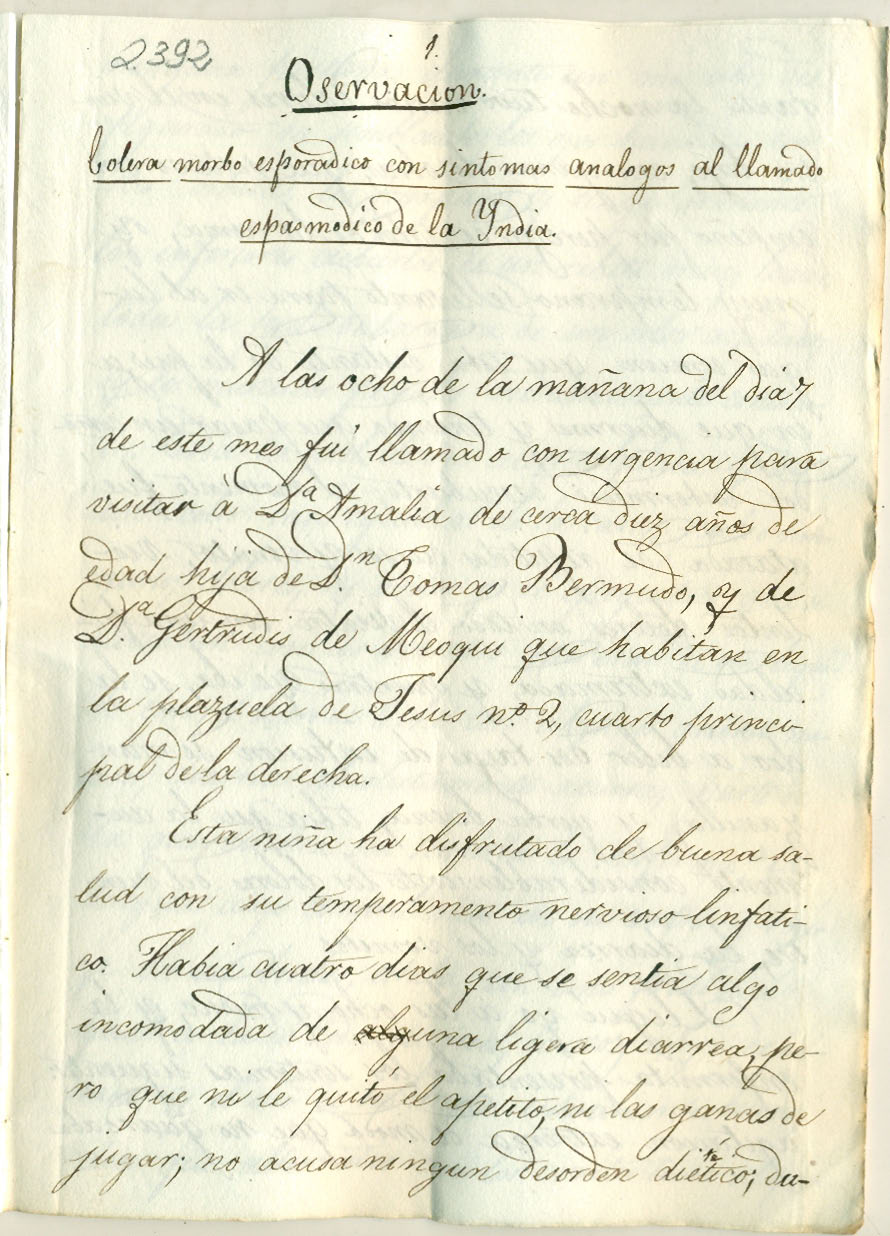 2392
1.
Oservacion.
Colera morbo esporadico con sintomas analogos al llamado
espasmodico de la Yndia.
A las ocho de la mañana del dia 7
de este mes fui llamado con urgencia para
visitar á D.ª Amalia de cerca diez años de
edad hija de D.n Tomas Bermudo, y de
D.ª Gertrudis de Meoqui que habitan en
la plazuela de Jesus nº. 2, cuarto princi-
pal de la derecha.
Esta niña ha disfrutado de buena sa-
lud con su temperamento nervioso linfati-
co. Habia cuatro dias que se sentia algo
incomodada de alguna ligera diarrea, pe-
ro que ni le quitó el apetito, ni las ganas de
jugar; no acusa ningun desorden dietético; du-